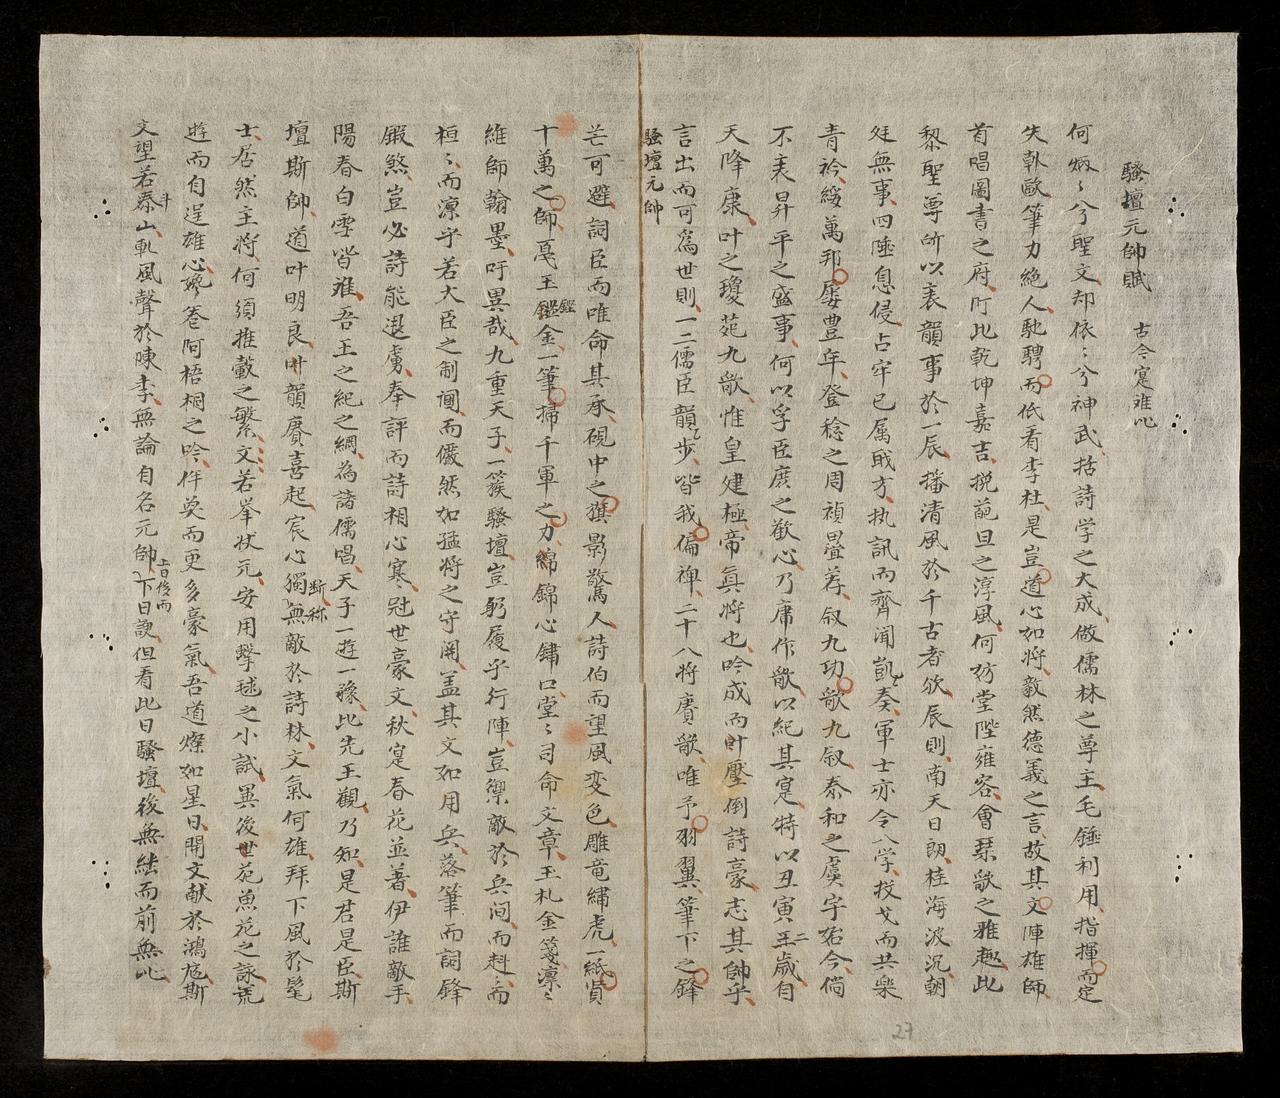 騷壇元帥賦 古今寔难比
何炳〻兮聖文却依〻兮神武括詩学之大成做儒林之尊主毛錘利用指揮而定
失韩歐筆力絕人馳騁而低看李杜是豈道心如將毅然德義之言故其文陣雄帥
首唱圖書之府盯比乾坤嘉吉挽葩旦之淳風何妨堂陛雍容會琹歌之雅趣此
黎聖尊所以表韻事於一辰播清風於千古者欤辰則南天日朗桂海波沉朝
廷無事四陲息侵占牢已属戢方执訊而齊闻凱奏軍士亦令入学投戈而共樂
青衿綏萬邦屡豊年登稔之周禎畳荐叙九功歌九叙泰和之虞宇始今倘
不表昇平之盛事何以孚臣庶之歡心乃庸作歌以紀其寔特以丑寅二王歲自
天降康叶之瓊苑九歌惟皇建極帝眞將也吟成而叶壓倒詩豪志其帥乎
言出而可為世則一二儒臣韻步皆我偏裨二十八將賡歌唯予羽翼筆下之鋒
騷壇元帥
芒可避詞臣而唯命其承硯中之旗影驚人詩伯而望風变色雕竜繡虎一紙贤
十萬之師戛玉鏗金一筆掃千軍之力綿錦心鏽口堂〻司命文章玉札金箋凛〻
維師翰墨吁異哉九重天子一簇騷壇豈躬履乎行陣豈禦敵於兵间而赳〻而
桓〻而凛乎若大臣之制閫而儼然如猛將之守関盖其文如用兵落筆而詞鋒
鍛煞豈必詩能退虜奉評而詩相心寒冠世豪文秋寔春花並著伊誰敵手
陽春白雪皆难吾王之紀之綱為諸儒唱天子一遊一豫比先王觀乃知是君是臣斯
壇斯帥道叶明良叶韻賡喜起宸心獨断称無敵於詩林文氣何雄拜下風於髦
士居然主將何須推轂之繁文若峯状元安用擊毬之小試異後世苑魚花之詠荒
遊而自逞雄心嬎卷阿梧桐之吟伴奐而更多豪氣吾道燦如星日開文献於鴻厖斯
文望若泰斗山軋風聲於陳李無論自名元帥上日後而下日說但看此日騷壇後無继而前無比
27